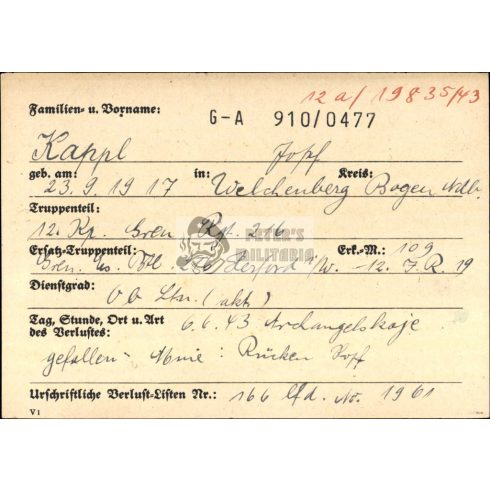 12a/19835/43
Familien- u. Vorname:
G-A 910/0477
Kappl Josef
geb. am: in: Kreis:
23.9.1917 Welchenberg Bogen Ndb.
Truppenteil:
12. Kp. Gren. Rgt.
PETER'S
MILITARIA
Ersatz-Truppenteil: Erk.-M.: 109
Gren. Herford /W. 12. J.R. 19
Dienstgrad:
Ltn. (akt)
Tag, Stunde, Ort u. Art
des Verlustes: 6.6.43 Archangelskoje
gefallen - Mine: Rücken Kopf
Urschriftliche Verlust-Listen Nr.: 166 lfd. No. 1961
V 1